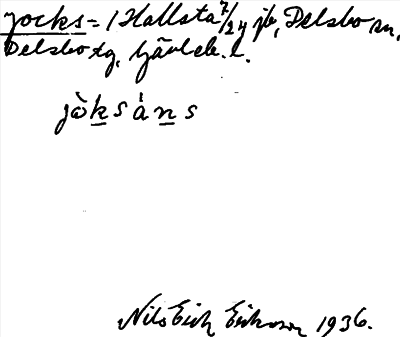 Jocks = / Hallsta 7/24 jb, Delsbo sn,
Delsbo tg, Gävleb. l.
jòksàns
Nils Erik Eriksson 1936.